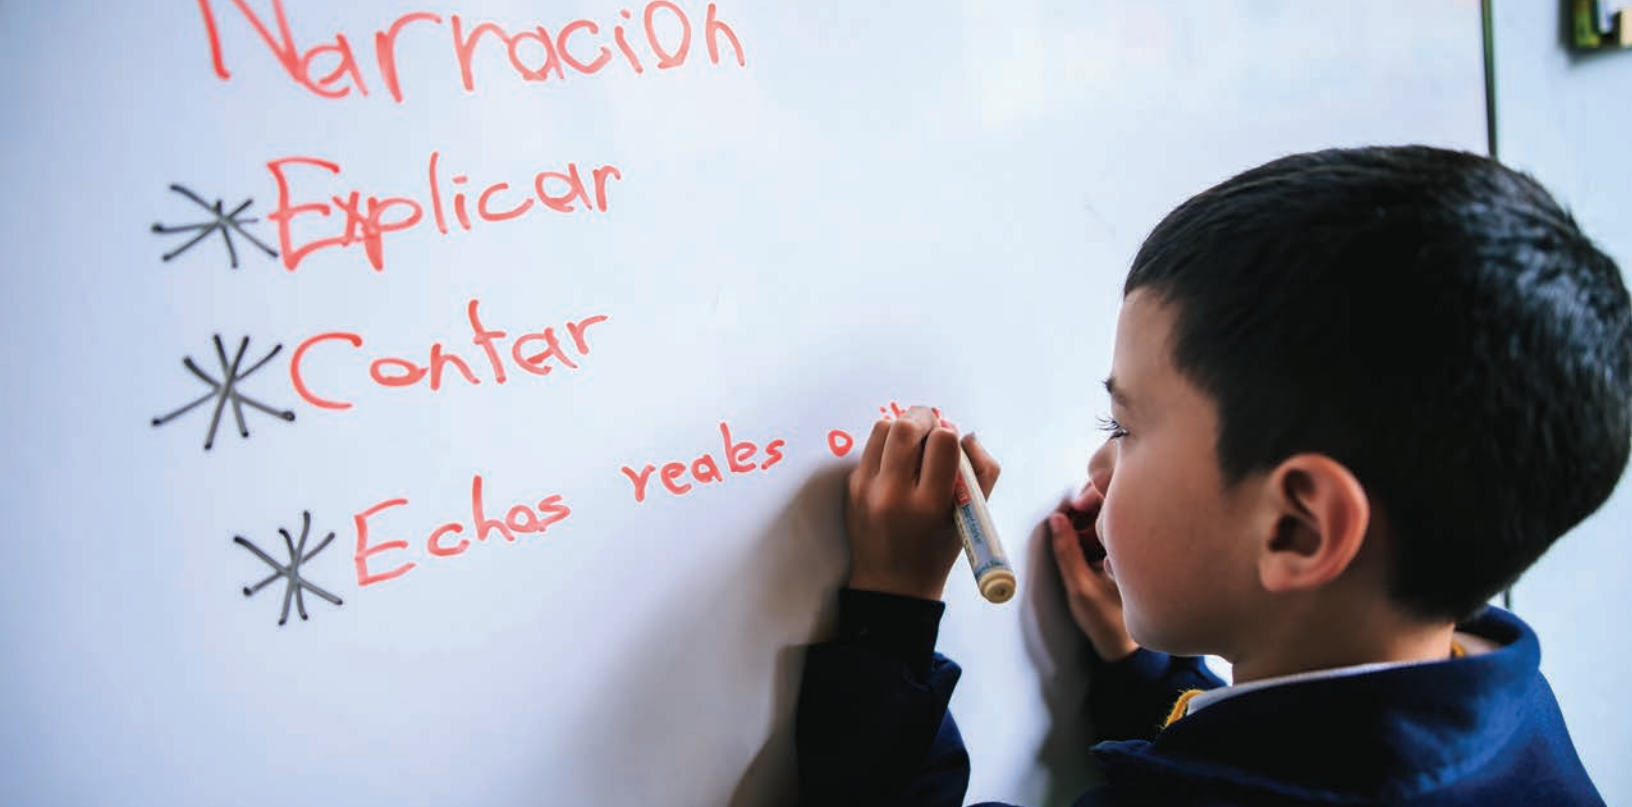 Narración
* Explicar
* Contar
* Echos reales o